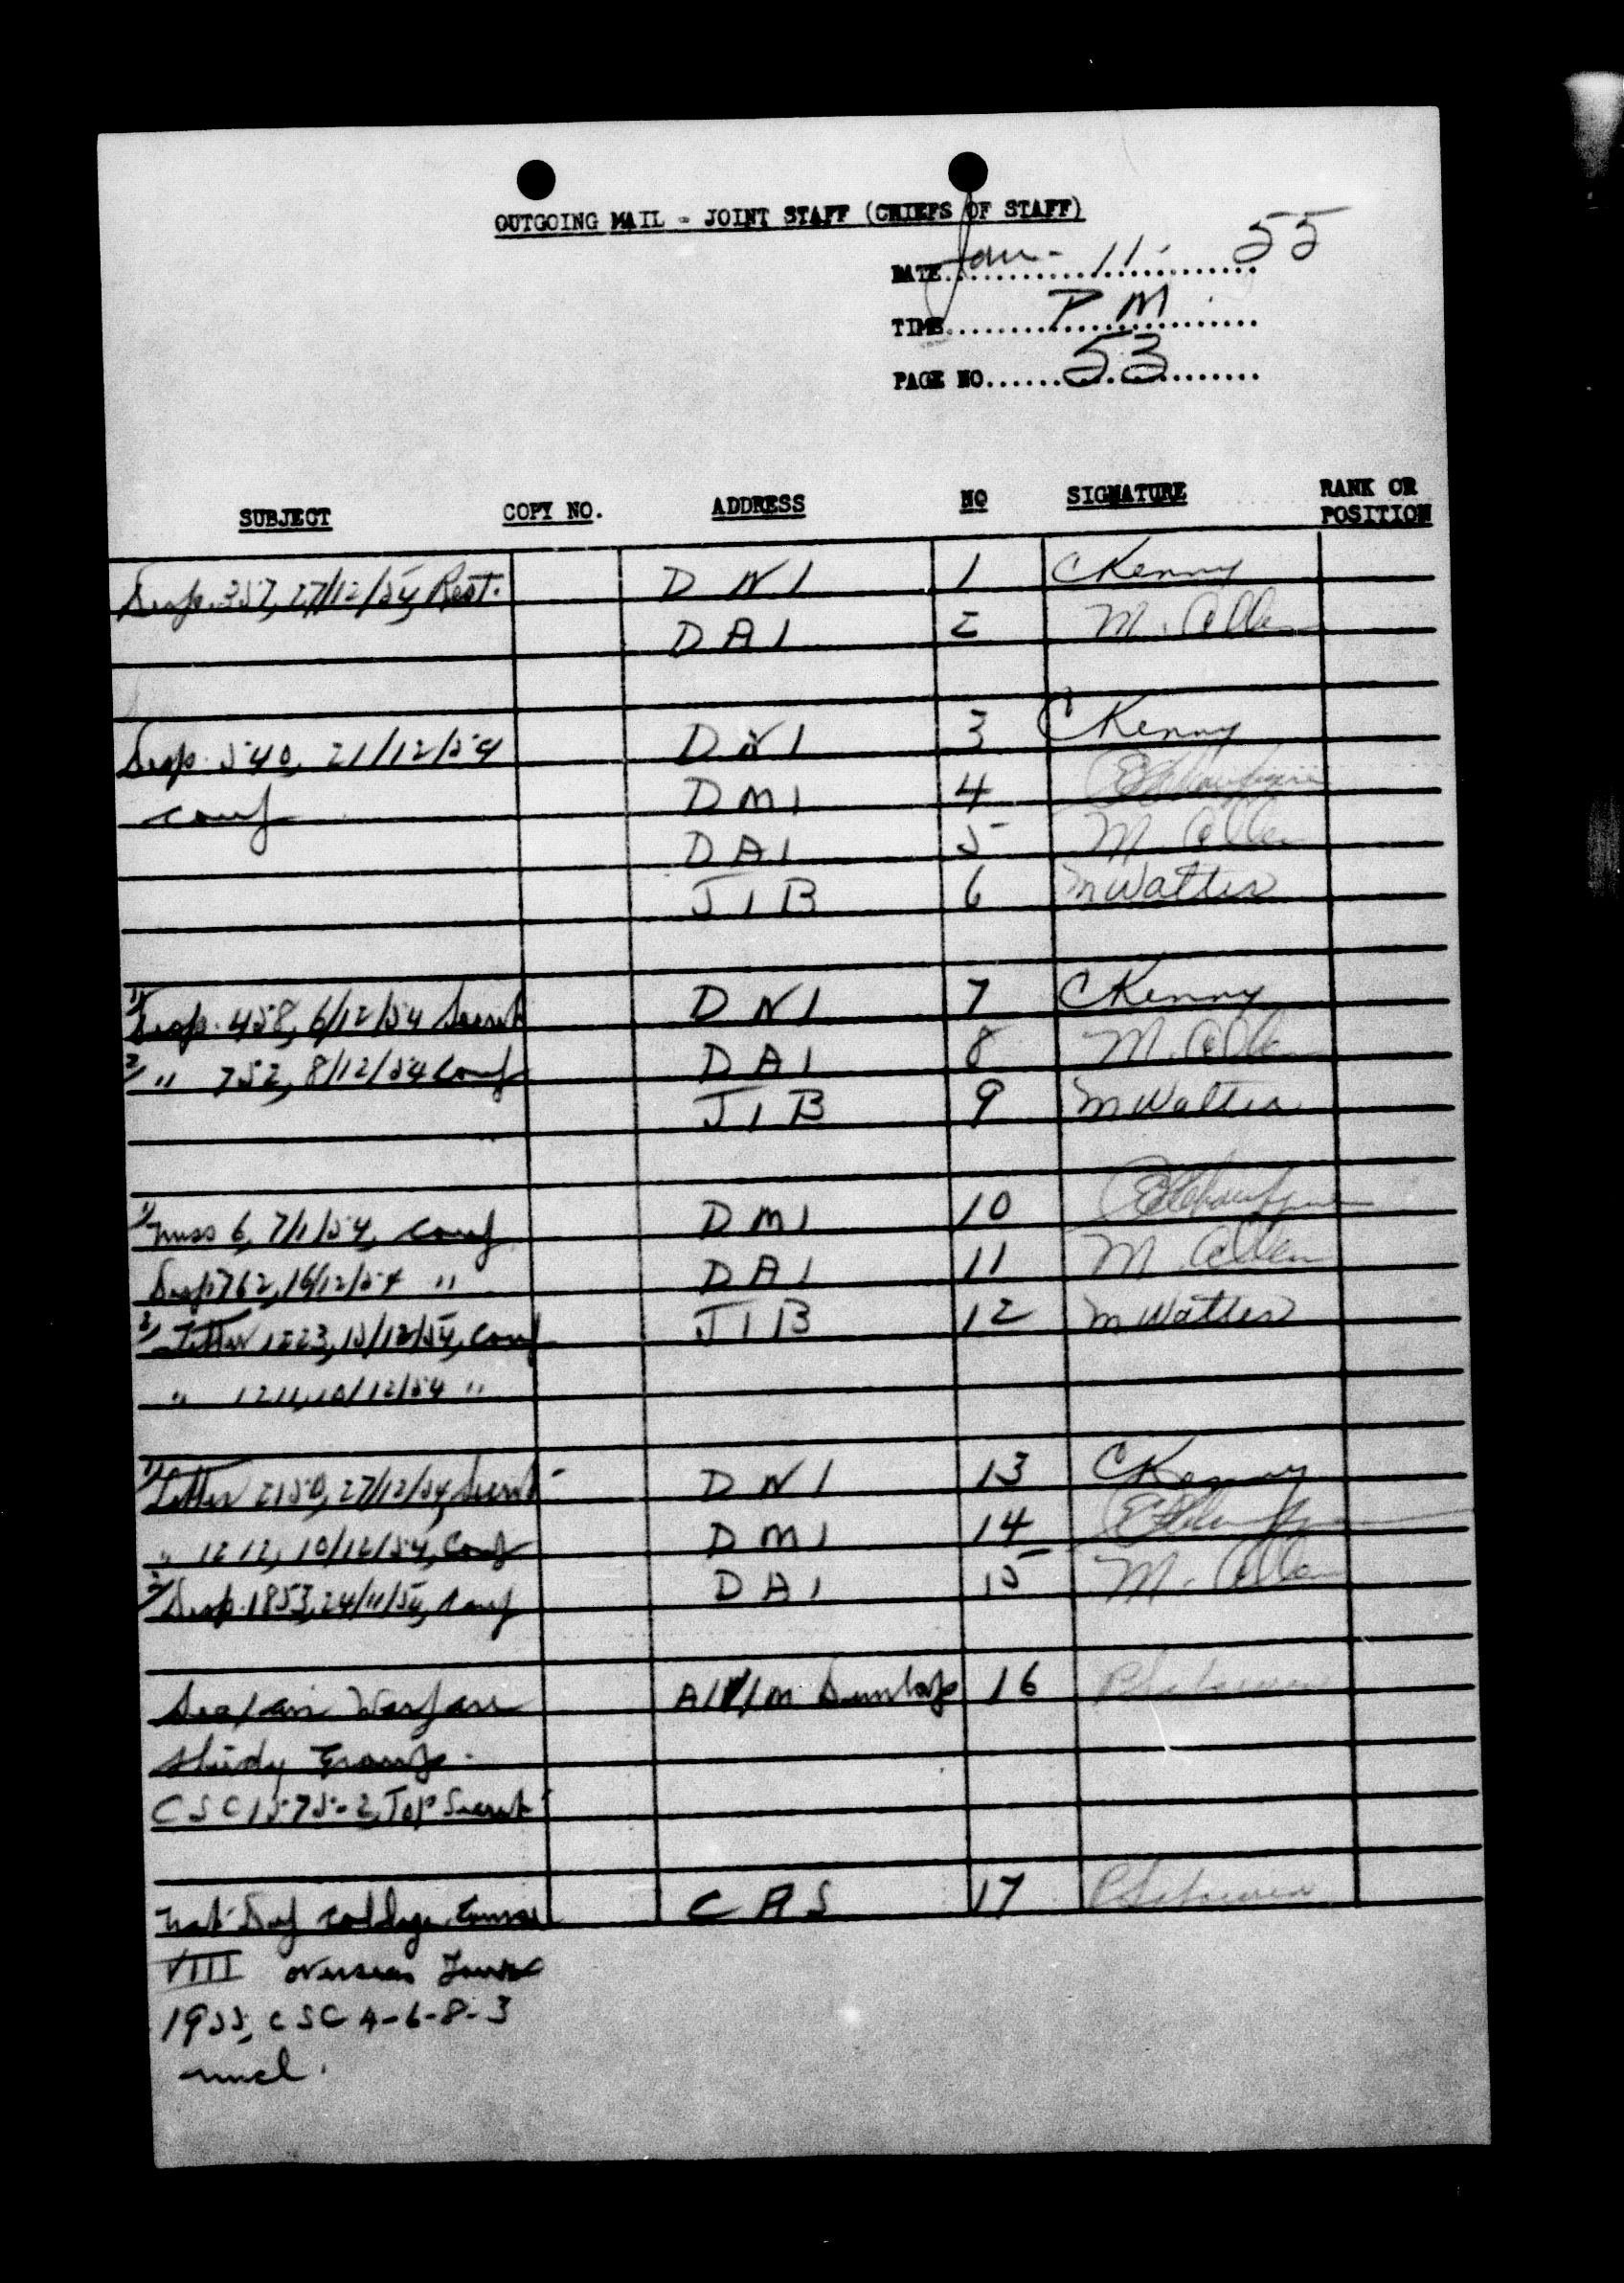 OUTGOING MAIL - JOINT STAFF (CHIEFS OF STAFF)
DATE Jan - 11 - 55
TIME P M
PAGE NO. 53
SUBJECT COPY NO. ADDRESS NO SIGNATURE RANK OR POSITION
Desp. 357, 27/12/54, Rest. D N I 1 C Kenny
D A I 2 M. Allen
Desp. 540, 21/12/54 D N I 3 C Kenny
conf D M I 4
D A I 5 M. Allen
J I B 6 M Watters
1/ Desp. 458, 6/12/54 Secret D N I 7 C Kenny
2/ " 752, 8/12/54 Conf D A I 8 M. Allen
J I B 9 M Watters
1/ 6, 7/1/54, Conf D M I 10
Desp 762, 16/12/54 " D A I 11 M. Allen
2/ Letter 1223, 15/12/54, Conf J I B 12 M Watters
" 1211, 10/12/54 "
1/ Letter 2150, 27/12/54, Secret D N I 13 C Kenny
" 1212, 10/12/54, Conf D M I 14
2/ Desp. 1853, 24/11/54, Conf D A I 15 M. Allen
Sea/air Warfare A/V/M Dunlap 16
Study Group.
CSC 1575-2, Top Secret
Nat Def College, Course C A S 17
VIII overseas Tour
1955, CSC 4-6-8-3
uncl.